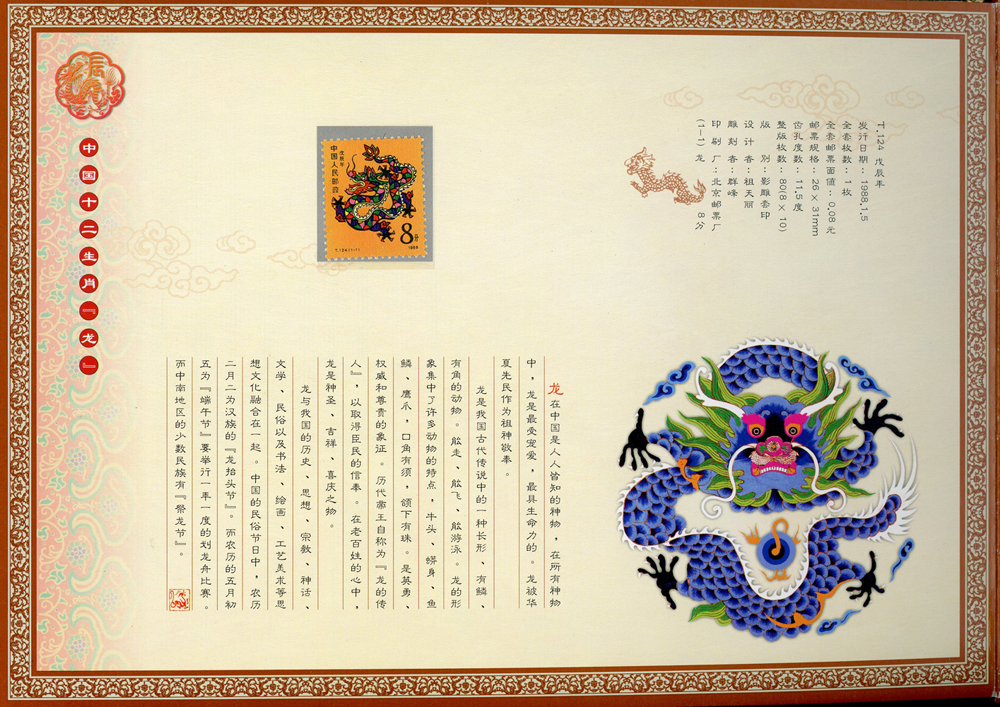 中国十二生肖『龙』
T.124 戊辰年
发行日期：1988.1.5
全套枚数：1枚
全套邮票面值：0.08元
邮票规格：26×31mm
齿孔度数：11.5度
整版枚数：80(8×10)
版 别：影雕套印
设计者：祖天丽
雕刻者：群峰
印刷厂：北京邮票厂
(1-1) 龙 8分
戊辰年
中国人民邮政
8分
T.124.(1-1)
1988
龙在中国是人人皆知的神物，在所有神物
中，龙是最受宠爱，最具生命力的。龙被华
夏先民作为祖神敬奉。
龙是我国古代传说中的一种长形、有鳞、
有角的动物。能走、能飞、能游泳。龙的形
象集中了许多动物的特点，牛头、蟒身、鱼
鳞、鹰爪，口角有须，颌下有珠。是英勇、
权威和尊贵的象征。历代帝王自称为『龙的传
人』，以取得臣民的信奉。在老百姓的心中，
龙是神圣、吉祥、喜庆之物。
龙与我国的历史、思想、宗教、神话、
文学、民俗以及书法、绘画、工艺美术等思
想文化融合在一起。中国的民俗节日中，农历
二月二为汉族的『龙抬头节』。而农历的五月初
五为『端午节』要举行一年一度的划龙舟比赛。
而中南地区的少数民族有『祭龙节』。